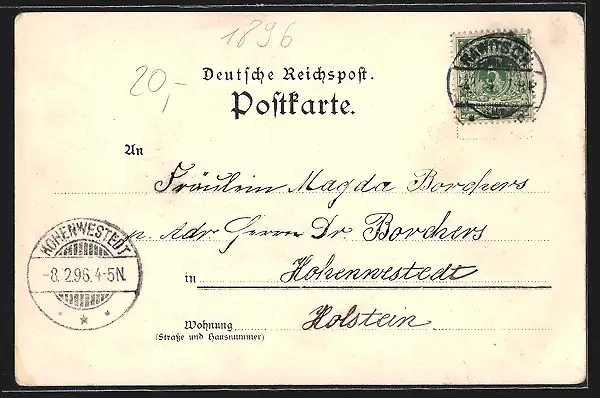 1896
20,-
Deutsche Reichspost.
Postkarte.
An
Fräulein Magda Borchers
p. Adr Herrn Dr. Borchers
in Hohenwestedt
Holstein
Wohnung
(Straße und Hausnummer)
HOHENWESTEDT
-8.2.96.4-5N.